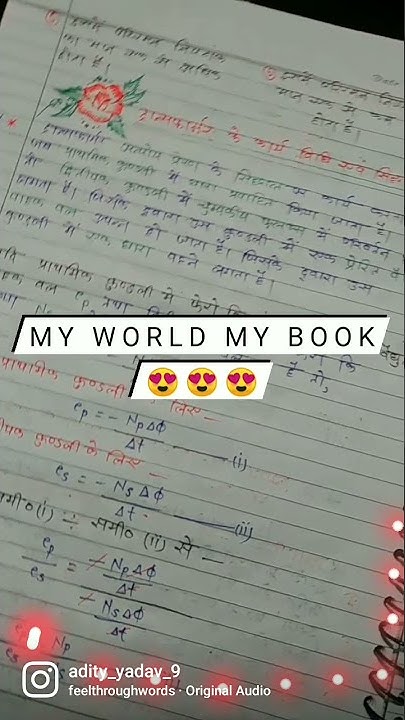 का मान एक से अधिक
होता है।
मान एक से कम
होता है।
ट्रान्सफार्मर के कार्य विधि एवं
ट्रान्सफार्मर अन्योन्य प्रेरण के सिद्धान्त पर कार्य करता
जब प्राथमिक कुण्डली में धारा प्रवाहित किया जाता है।
तो द्वितीयक कुण्डली में चुम्बकीय फ्लक्स में परिवर्तन
लगता है। जिसके द्वारा उस कुण्डली में एक प्रेरित वि
वाहक बल उत्पन्न हो जाता है। जिसके द्वारा उस
कुण्डली में एक धारा बहने लगता है।
प्राथमिक कुण्डली में फेरो कि
वाहक बल ep तथा
MY WORLD MY BOOK
😍😍😍
है तो,
प्राथमिक कुण्डली के लिए —
ep = - NpΔϕ
Δt —(i)
कुण्डली के लिए —
es = - NsΔϕ
Δt —(ii)
समी० (i) ÷ समी० (ii) से —
ep/es = - NpΔϕ/Δt
- NsΔϕ/Δt
Np
adity_yadav_9
feelthroughwords · Original Audio